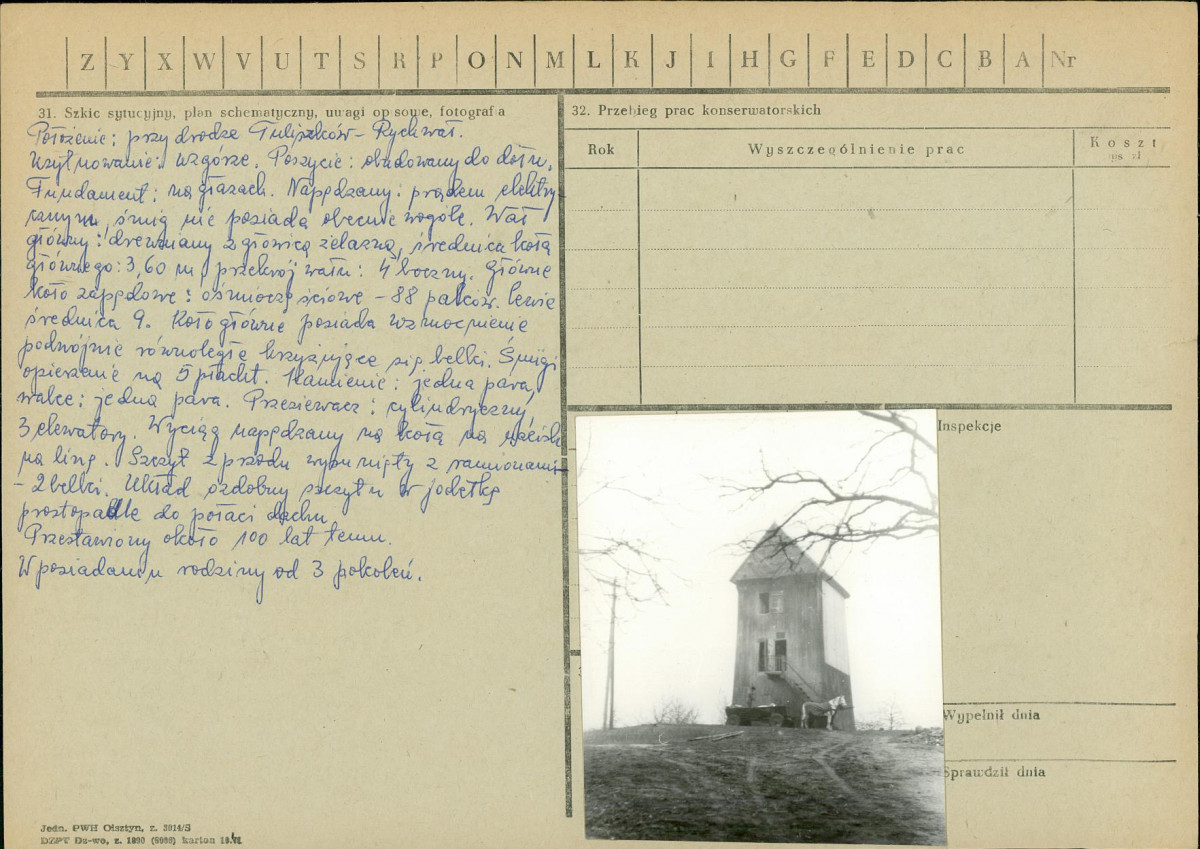 Z Y X W V U T S R P O N M L K J I H G F E D C B A Nr
31. Szkic sytucyjny, plan schematyczny, uwagi opisowe, fotografia
Położenie: przy drodze Tuliszków – Rychwał.
Usytuowanie: wzgórze. Poszycie: obudowany do dołu.
Fundament: na głazach. Napędzany: prądem elektry-
cznym, śmig nie posiada obecnie wogóle. Wał
główny: drewniany z głowicą żelazną, średnica koła
głównego: 3,60 m, przekrój wału: 4 boczny. Główne
koło zapędowe: ośmioczęściowe – 88 palców.
średnica 9. Koło główne posiada wzmocnienie
podwójnie równolegle krzyżujące się belki. Śmigi
opierzenie na 5 płacht. Kamienie: jedna para,
walce: jedna para. Przesiewacz: cylindryczny,
3 elewatory. Wyciąg napędzany na koła na
na linę. Szczyt z przodu wysunięty z ramionami –
– 2 belki. Układ ozdobny szczytu w jodełkę
prostopadle do połaci dachu.
Przestawiony około 100 lat temu.
W posiadaniu rodziny od 3 pokoleń.
Jedn. PWH Olsztyn, z. 3014/S
DZPT Dz-wo, z. 1890 (5000) karton
32. Przebieg prac konserwatorskich
Rok Wyszczególnienie prac Koszt
tys zł
Inspekcje
Wypełnił dnia
Sprawdził dnia